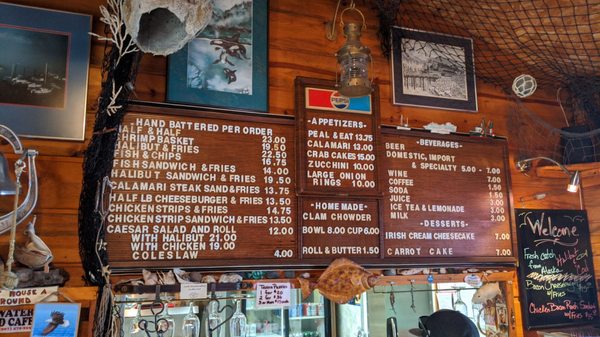 HAND BATTERED PER ORDER
HALF & HALF
SHRIMP BASKET 23.00
HALIBUT & FRIES 19.50
FISH & CHIPS 22.50
FISH SANDWICH & FRIES 16.75
HALIBUT SANDWICH & FRIES 19.50
CALAMARI STEAK SAND & FRIES 13.75
HALF LB CHEESEBURGER & FRIES 13.50
CHICKEN STRIPS & FRIES 14.75
CHICKEN STRIP SANDWICH & FRIES 13.50
CAESAR SALAD AND ROLL 12.00
WITH HALIBUT 21.00
WITH CHICKEN 19.00
COLE SLAW 4.00
APPETIZERS
PEAL & EAT 13.75
CALAMARI 13.00
CRAB CAKES 15.00
ZUCCHINI 10.00
LARGE ONION
RINGS 10.00
HOME MADE
CLAM CHOWDER
BOWL 8.00 CUP 6.00
ROLL & BUTTER 1.50
BEVERAGES
BEER
DOMESTIC, IMPORT
& SPECIALTY 5.00 - 7.00
WINE 7.00
COFFEE 2.50
SODA 1.50
JUICE 3.00
ICE TEA & LEMONADE 3.00
MILK 3.00
DESSERTS
IRISH CREAM CHEESECAKE 7.00
CARROT CAKE 7.00
Welcome
Fresh
Halibut
Bacon Cheeseburger
w/Fries
Chicken Bacon Ranch Sandwich
w/Fries